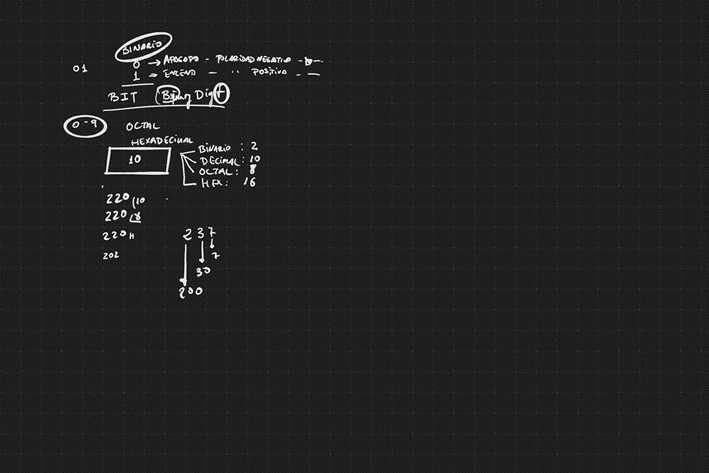 BINARIO
0 → APAGADO - POLARIDAD NEGATIVA -
01
1 → ENCEND - " POSITIVA -
BIT Binary Digit
0-9 OCTAL
HEXADECIMAL
10
BINARIO : 2
DECIMAL : 10
OCTAL : 8
HEX : 16
220 (10
220
220 H
202
237
7
30
200